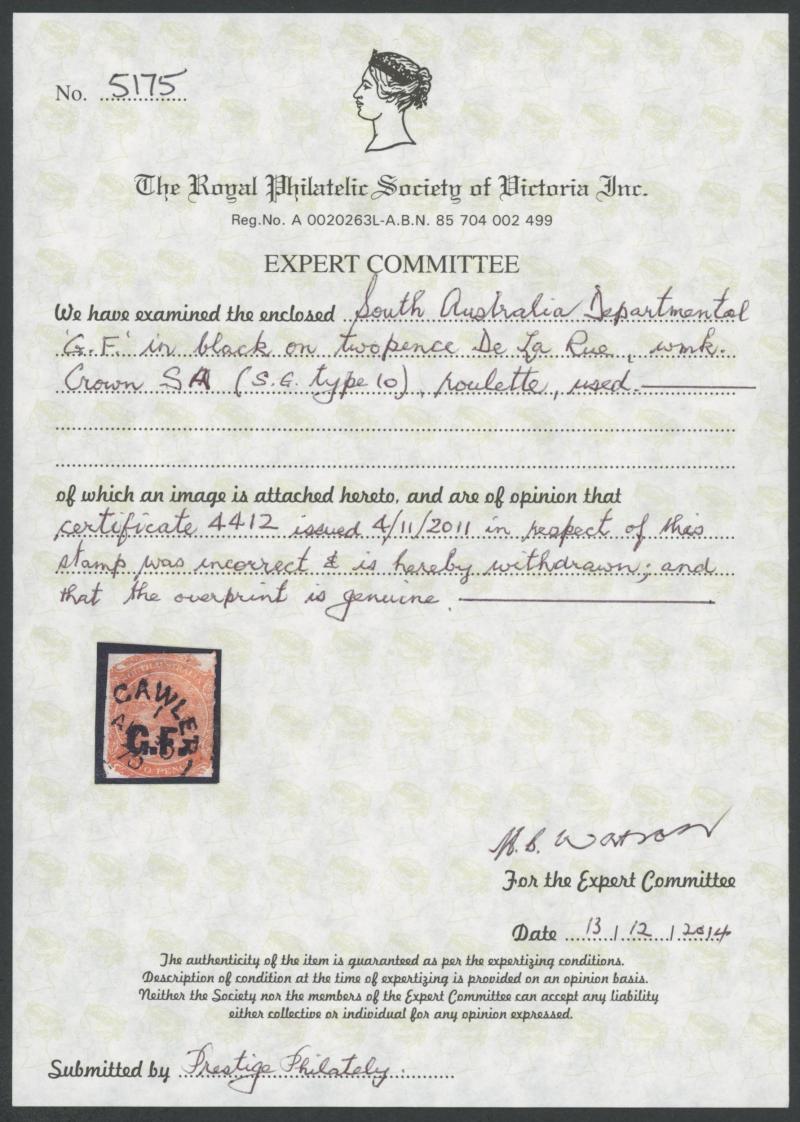 No. 5175
The Royal Philatelic Society of Victoria Inc.
Reg.No. A 0020263L-A.B.N. 85 704 002 499
EXPERT COMMITTEE
We have examined the enclosed South Australia Departmental
'G.F.' in black on twopence De La Rue, wmk.
Crown SA (S.G. type 10), roulette, used.
of which an image is attached hereto, and are of opinion that
certificate 4412 issued 4/11/2011 in respect of this
stamp was incorrect & is hereby withdrawn; and
that the overprint is genuine.
SOUTH AUSTRALIA
GAWLER
G.F.
TWO PENCE
For the Expert Committee
Date 13 / 12 / 2014
The authenticity of the item is guaranteed as per the expertizing conditions.
Description of condition at the time of expertizing is provided on an opinion basis.
Neither the Society nor the members of the Expert Committee can accept any liability
either collective or individual for any opinion expressed.
Submitted by Prestige Philately.